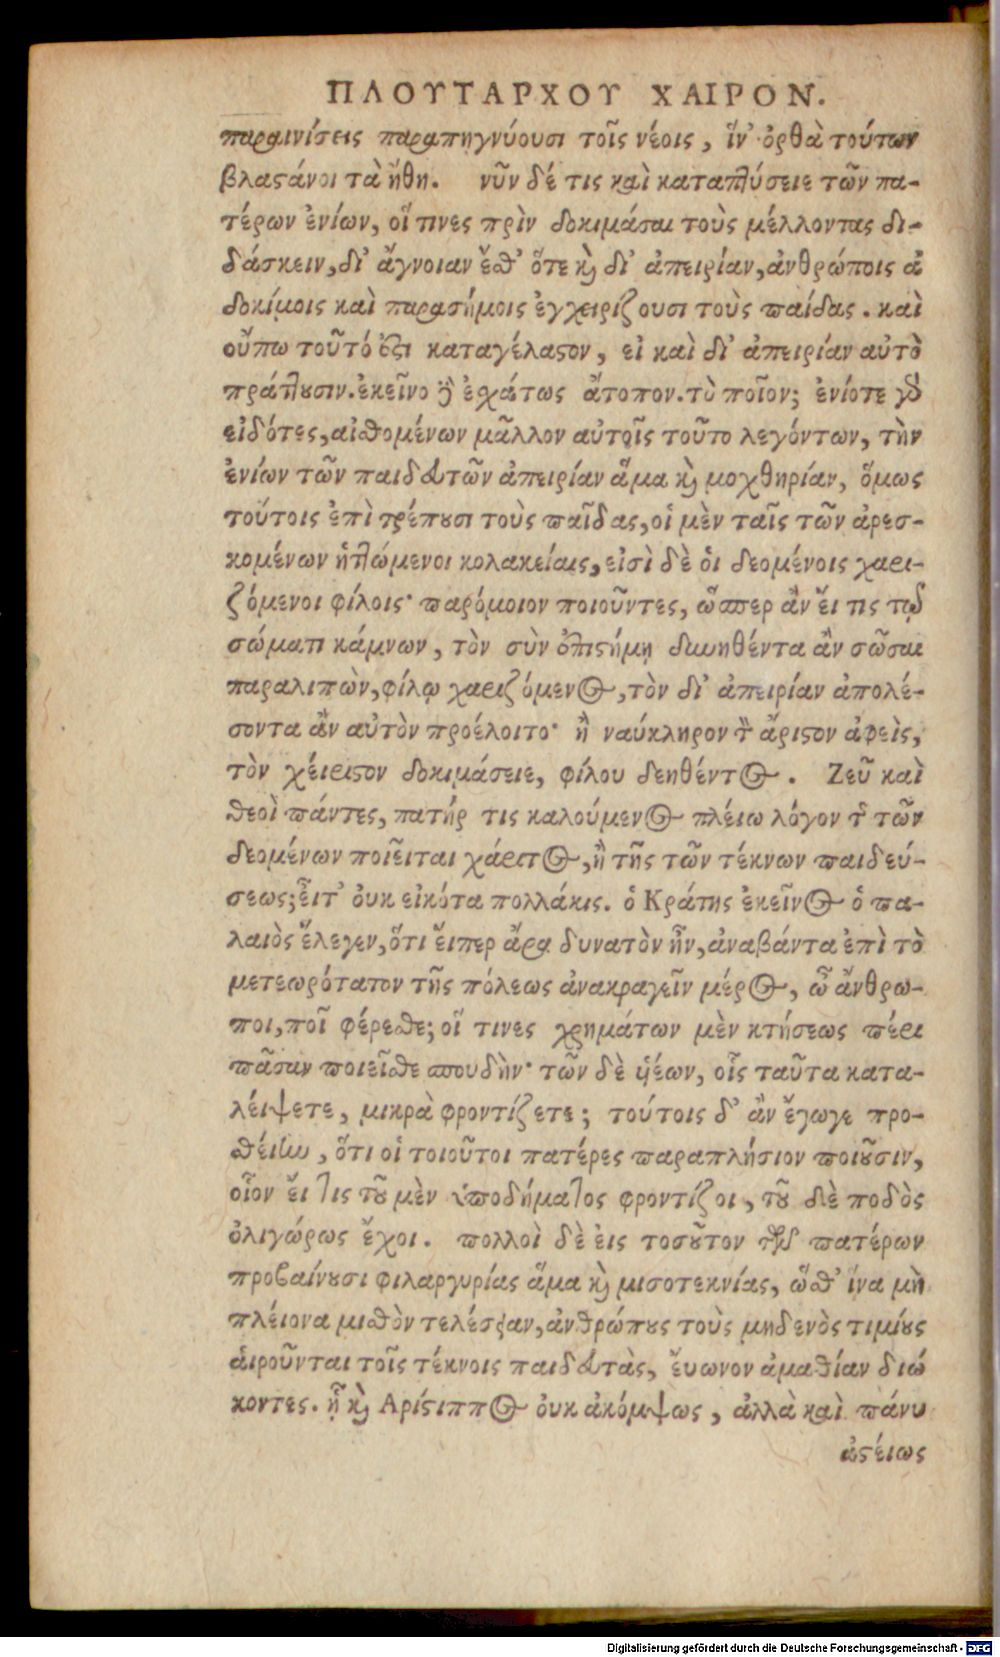 ΠΛΟΥΤΑΡΧΟΥ ΧΑΙΡΟΝ.
παραινίσεις παραπηγνύουσι τοῖς νέοις, ἵν' ὀρθὰ τούτων
βλαϛάνοι τὰ ἤθη. νῦν δέ τις καὶ καταπτύσειε τῶν πα-
τέρων ἐνίων, οἵ τινες πρὶν δοκιμάσαι τοὺς μέλλοντας δι-
δάσκειν, δι' ἄγνοιαν ἔσθ' ὅτε κὶ δι' ἀπειρίαν, ἀνθρώποις ἀ
δοκίμοις καὶ παρασήμοις ἐγχειρίζουσι τοὺς παίδας. καὶ
οὔπω τοῦτό ἐϛι καταγέλαϛον, εἰ καὶ δι' ἀπειρίαν αὐτὸ
πράττȣσιν. ἐκεῖνο δ' ἐσχάτως ἄτοπον. τὸ ποῖον; ἐνίοτε γὰρ
εἰδότες, αἰσθομένων μᾶλλον αὐτοῖς τοῦτο λεγόντων, τὴν
ἐνίων τῶν παιδευτῶν ἀπειρίαν ἅμα κὶ μοχθηρίαν, ὅμως
τούτοις ἐπὶ τρέπȣσι τοὺς παῖδας, οἱ μὲν ταῖς τῶν ἀρεσ-
κομένων ἡττώμενοι κολακείαις, εἰσὶ δὲ ὁι δεομένοις χαρι-
ζόμενοι φίλοις· παρόμοιον ποιοῦντες, ὥσπερ ἂν ἔι τις τῷ
σώματι κάμνων, τὸν σὺν ἐπιϛήμῃ δυνηθέντα ἂν σῶσαι
παραλιπὼν, φίλῳ χαριζόμενος, τὸν δι' ἀπειρίαν ἀπολέ-
σοντα ἂν αὐτὸν προέλοιτο· ἢ ναύκληρον τὸν ἄριϛον ἀφεὶς,
τὸν χέιριϛον δοκιμάσειε, φίλου δεηθέντος. Ζεῦ καὶ
θεοὶ πάντες, πατήρ τις καλούμενος πλέιω λόγον τῆς τῶν
δεομένων ποιεῖται χάριτος, ἢ τῆς τῶν τέκνων παιδεύ-
σεως; εἶτ' ὀυκ εἰκότα πολλάκις. ὁ Κράτης ἐκεῖνος ὁ πα-
λαιὸς ἔλεγεν, ὅτι ἔιπερ ἄρα δυνατὸν ἦν, ἀναβάντα ἐπὶ τὸ
μετεωρότατον τῆς πόλεως ἀνακραγεῖν μέρος, ὦ ἄνθρω-
ποι, ποῖ φέρεσθε; οἵ τινες χρημάτων μὲν κτήσεως πέρι
πᾶσαν ποιεῖσθε σπουδὴν· τῶν δὲ ὑέων, οἷς ταῦτα κατα-
λέιψετε, μικρὰ φροντίζετε; τούτοις δ' ἂν ἔγωγε προ-
σθείην, ὅτι οἱ τοιοῦτοι πατέρες παραπλήσιον ποιȣ͂σιν,
οἷον ἔι τις τȣ͂ μὲν ὑποδήματος φροντίζοι, τȣ͂ δὲ ποδὸς
ὀλιγώρως ἔχοι. πολλοὶ δὲ ἐις τοσȣ͂τον τῶν πατέρων
προβαίνȣσι φιλαργυρίας ἅμα κὶ μισοτεκνίας, ὥσθ' ἵνα μὴ
πλέιονα μισθὸν τελέσειαν, ἀνθρώπȣς τοὺς μηδενὸς τιμίȣς
ἁιροῦνται τοῖς τέκνοις παιδευτὰς, ἔυωνον ἀμαθίαν διώ
κοντες. ᾗ κὶ Αρίϛιππος ὀυκ ἀκόμψως, ἀλλὰ καὶ πάνυ
ἀϛέιως
Digitalisierung gefördert durch die Deutsche Forschungsgemeinschaft - DFG